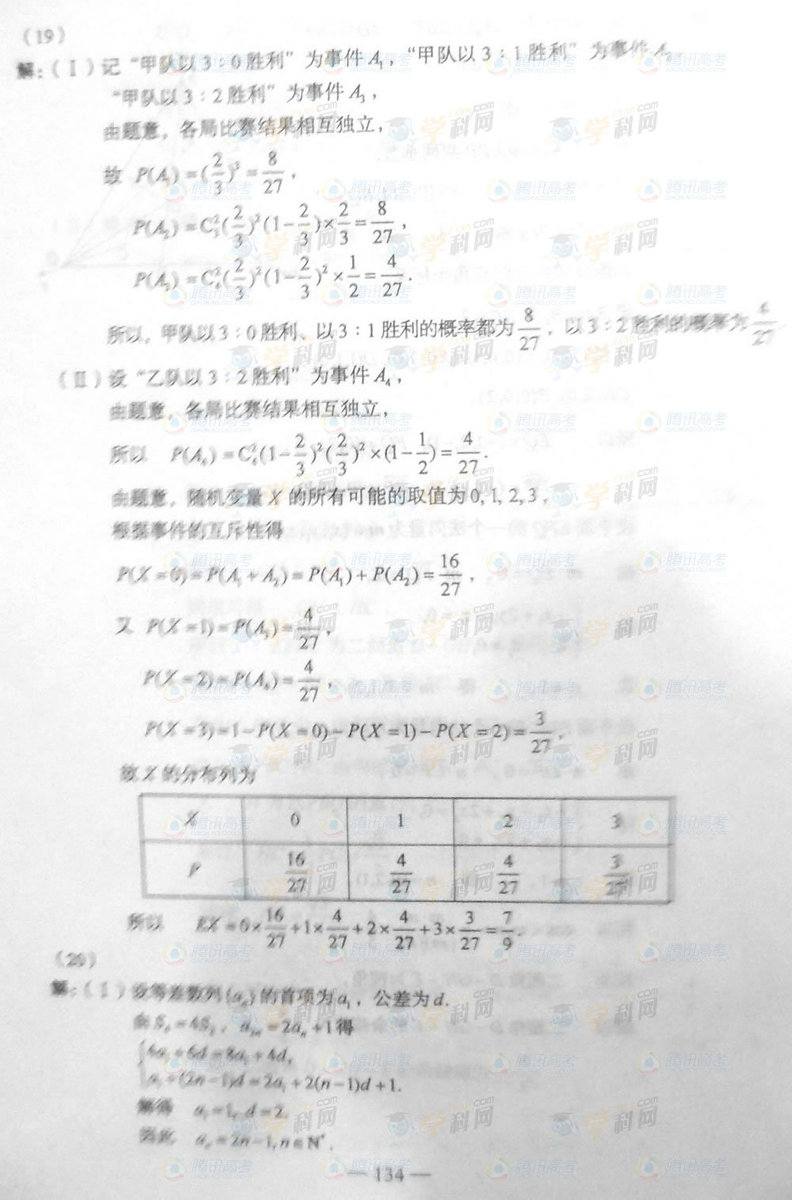 (19)
解:(Ⅰ)记“甲队以3:0胜利”为事件A₁,“甲队以3:1胜利”为事件A₂,
“甲队以3:2胜利”为事件A₃,
由题意,各局比赛结果相互独立,
故 P(A₁)=(2/3)³=8/27,
P(A₂)=C₃²(2/3)²(1-2/3)×2/3=8/27,
P(A₃)=C₄²(2/3)²(1-2/3)²×1/2=4/27.
所以,甲队以3:0胜利、以3:1胜利的概率都为8/27,以3:2胜利的概率为4/27.
(Ⅱ)设“乙队以3:2胜利”为事件A₄,
由题意,各局比赛结果相互独立,
所以 P(A₄)=C₄²(1-2/3)²(2/3)²×(1-1/2)=4/27.
由题意,随机变量X的所有可能的取值为0,1,2,3,
根据事件的互斥性得
P(X=0)=P(A₁+A₂)=P(A₁)+P(A₂)=16/27,
又 P(X=1)=P(A₃)=4/27,
P(X=2)=P(A₄)=4/27,
P(X=3)=1-P(X=0)-P(X=1)-P(X=2)=3/27,
故X的分布列为
X 0 1 2 3
P 16/27 4/27 4/27 3/27
所以 EX=0×16/27+1×4/27+2×4/27+3×3/27=7/9.
(20)
解:(Ⅰ)设等差数列{aₙ}的首项为a₁,公差为d.
由S₄=4S₂,a₂ₙ=2aₙ+1得
{4a₁+6d=8a₁+4d,
a₁+(2n-1)d=2a₁+2(n-1)d+1.
解得 a₁=1,d=2.
因此 aₙ=2n-1,n∈N*.
— 134 —